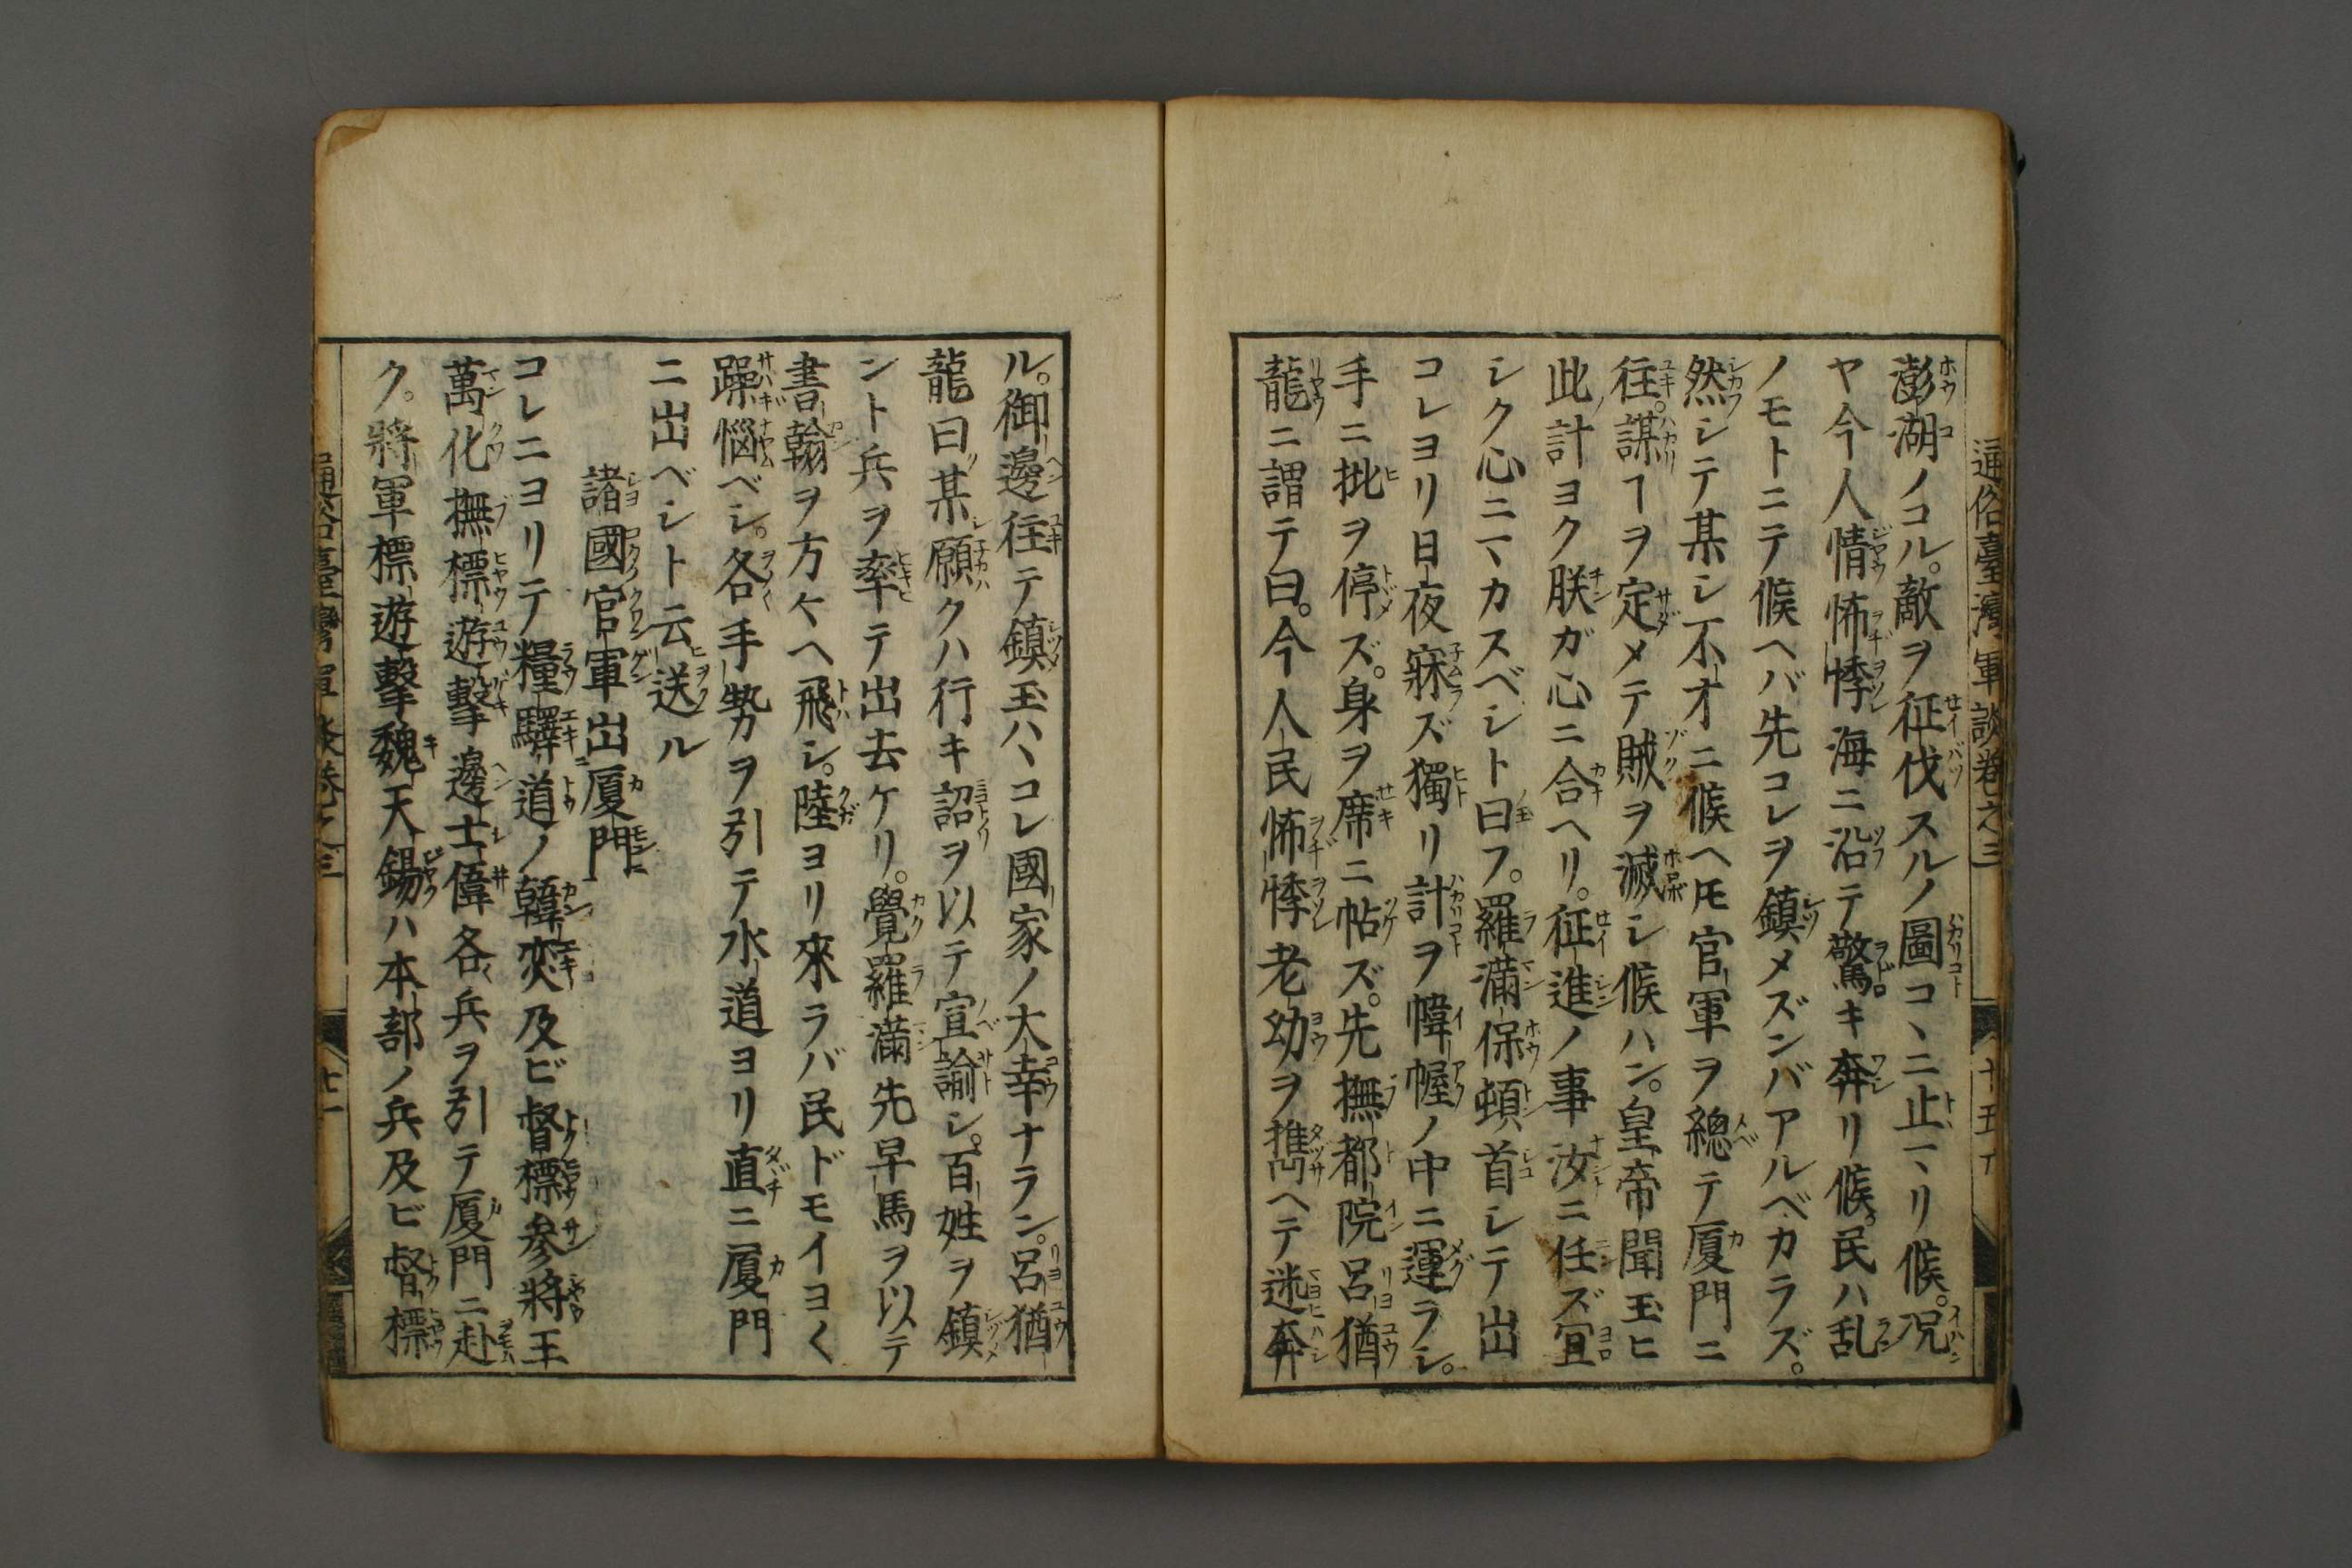 通俗臺灣軍談卷之三
十五
澎湖ノコル。敵ヲ征伐スルノ圖コヽニ止マリ候。况
ヤ今人情怖悸海ニ沿テ驚キ奔リ候。民ハ乱
ノモトニテ候ヘバ先コレヲ鎮メズンバアルベカラズ。
然シテ某シ不才ニ候ヘ𪜈官軍ヲ總テ厦門ニ
往。謀ヿヲ定メテ賊ヲ滅シ候ハン。皇帝聞玉ヒ
此計ヨク朕ガ心ニ合ヘリ。征進ノ事汝ニ任ズ宜
シク心ニマカスベシト曰フ。羅滿保頓首シテ出
コレヨリ日夜寐ズ獨リ計ヲ幃幄ノ中ニ運ラシ。
手ニ批ヲ停ズ。身ヲ席ニ帖ズ。先撫都院呂猶
龍ニ謂テ曰。今人民怖悸老幼ヲ擕ヘテ迷奔
ル。御邊往テ鎮玉ハヽコレ國家ノ大幸ナラン。呂猶
龍曰某願クハ行キ詔ヲ以テ宣諭シ。百姓ヲ鎮
ント兵ヲ率テ出去ケリ。覺羅滿先早馬ヲ以テ
書翰ヲ方々ヘ飛シ。陸ヨリ來ラバ民ドモイヨ〱
躁惱ベシ。各手勢ヲ引テ水道ヨリ直ニ厦門
ニ出ベシト云送ル
諸國官軍出厦門
コレニヨリテ糧驛道ノ韓奕及ビ督標参將王
萬化撫標遊擊邊士偉各兵ヲ引テ厦門ニ赴
ク。將軍標遊擊魏天錫ハ本部ノ兵及ビ督標